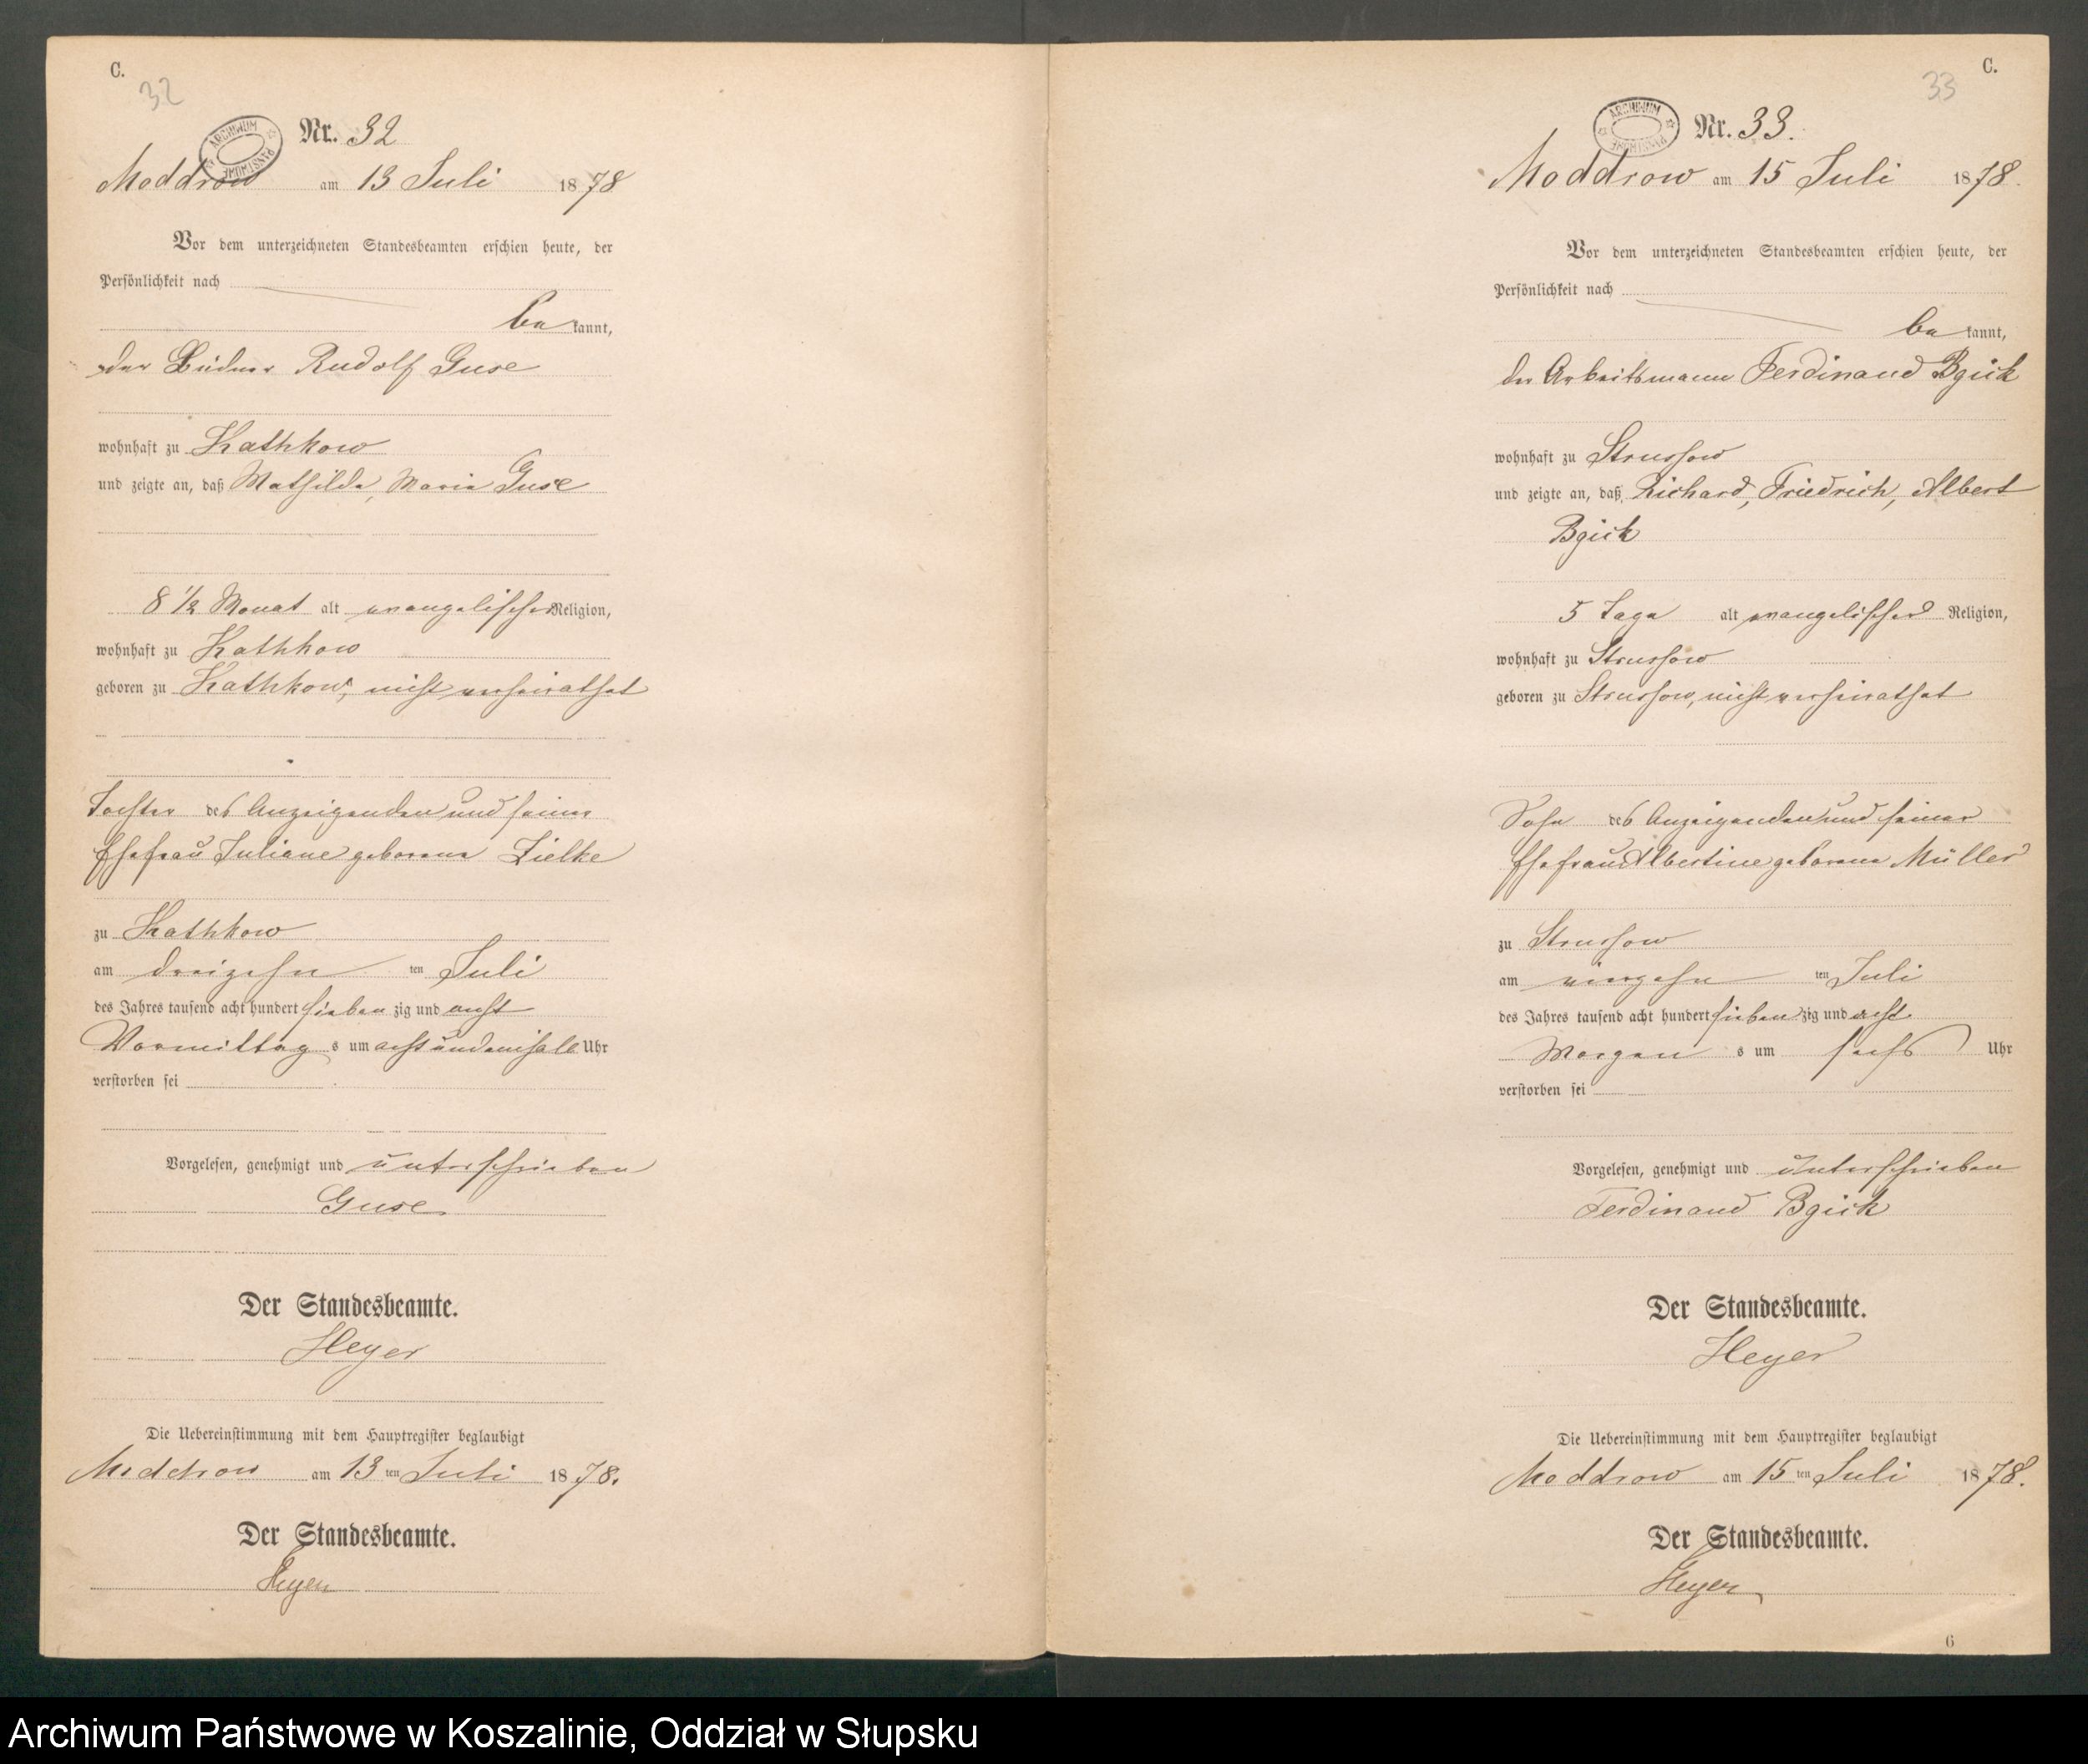 C.
32
ARCHIWUM PAŃSTWOWE
Nr. 32
Moddrow am 13 Juli 1878
Vor dem unterzeichneten Standesbeamten erschien heute, der
Persönlichkeit nach
bekannt,
der Büdner Rudolf Guse
wohnhaft zu Kathkow
und zeigte an, daß Mathilde, Marie Guse
8 1/2 Monat alt evangelischer Religion,
wohnhaft zu Kathkow
geboren zu Kathkow, nicht verheirathet
Tochter des Anzeigenden und seiner
Ehefrau Juliane geborene Zielke
zu Kathkow
am dreizehnten Juli
des Jahres tausend acht hundert siebenzig und acht
Vormittags um acht und ein halb Uhr
verstorben sei
Vorgelesen, genehmigt und unterschrieben
Guse
Der Standesbeamte.
Heyer
Die Uebereinstimmung mit dem Hauptregister beglaubigt
Moddrow am 13ten Juli 1878.
Der Standesbeamte.
Heyer
C.
33
ARCHIWUM PAŃSTWOWE
Nr. 33.
Moddrow am 15 Juli 1878.
Vor dem unterzeichneten Standesbeamten erschien heute, der
Persönlichkeit nach
bekannt,
der Arbeitsmann Ferdinand Bgick
wohnhaft zu Strussow
und zeigte an, daß Richard, Friedrich, Albert
Bgick
5 Tage alt evangelischer Religion,
wohnhaft zu Strussow
geboren zu Strussow, nicht verheirathet
Sohn des Anzeigenden und seiner
Ehefrau Albertine geborene Müller
zu Strussow
am vierzehnten Juli
des Jahres tausend acht hundert siebenzig und acht
Morgens um sechs Uhr
verstorben sei
Vorgelesen, genehmigt und unterschrieben
Ferdinand Bgick
Der Standesbeamte.
Heyer
Die Uebereinstimmung mit dem Hauptregister beglaubigt
Moddrow am 15ten Juli 1878.
Der Standesbeamte.
Heyer
6
Archiwum Państwowe w Koszalinie, Oddział w Słupsku